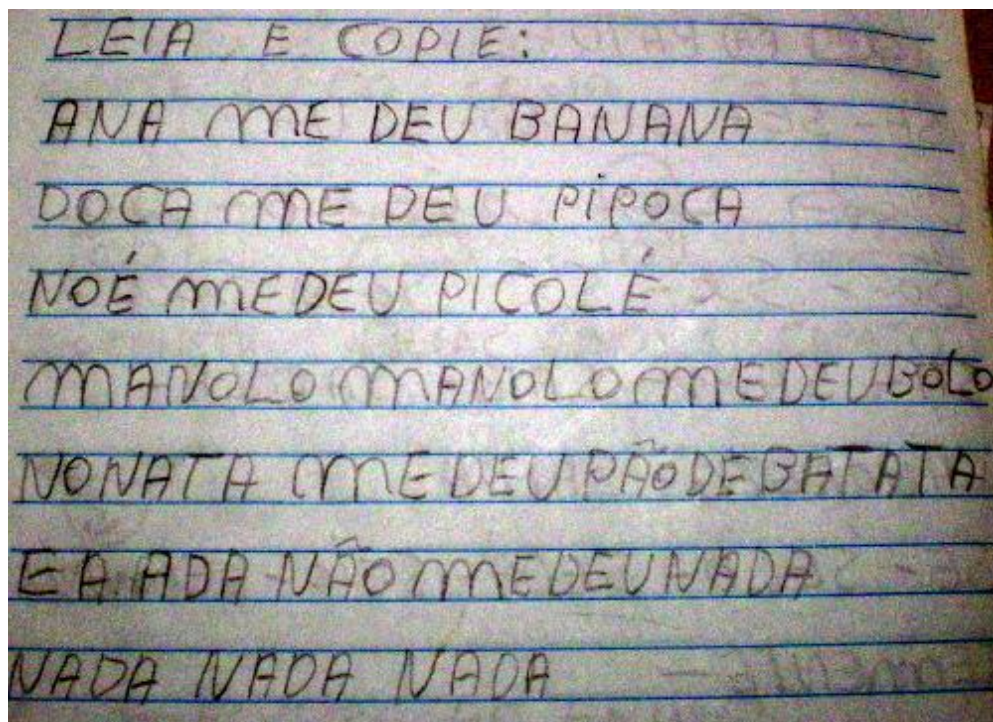 LEIA E COPIE:
ANA ME DEU BANANA
DOCA ME DEU PIPOCA
NOÉ ME DEU PICOLÉ
MANOLO MANOLO ME DEU BOLO
NONATA ME DEU PÃO DE BATATA
E A ADA NÃO ME DEU NADA
NADA NADA NADA